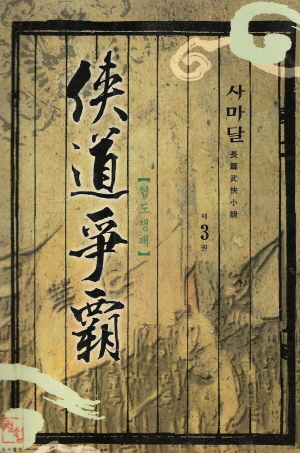 俠道爭覇
【협도쟁패】
사마달
長篇武俠小說
제3권